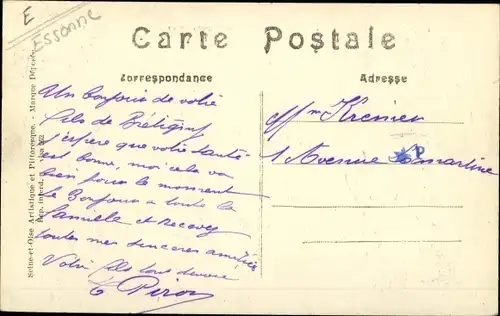 E
Essonne
Carte Postale
Correspondance
Adresse
Un bonjour de votre
fils de Brétigny
J'espère que votre santé
est bonne, moi cela va
bien pour le moment
le Bonjour a toute la
famille et recevez
toutes mes sincères amitiés
Votre fils tout dévoué
Piron
Mr Kremer
1 Avenue Lamartine
Seine-et-Oise Artistique et Pittoresque. - Marque Déposée
Rep. interd.